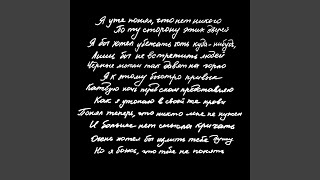 Я уже понял, что нет никого
По ту сторону этих дверей
Я бы хотел убежать хоть куда-нибудь,
Лишь бы не встретить людей
Чёрные мысли так давят на горло
Я к этому быстро привык
Каждую ночь пред сном представляю
Как я утопаю в своей же крови
Понял теперь, что никто мне не нужен
И больше нет смысла кричать
Очень хотел бы излить тебе душу
Но я боюсь, что тебе не понять